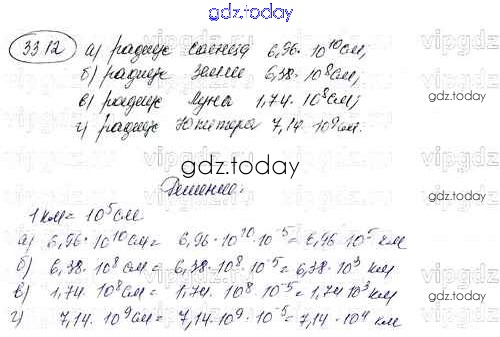 gdz.today
33.12 а) радиус солнца 6,96 · 10¹⁰ см,
б) радиус Земли 6,38 · 10⁸ см,
в) радиус Луна 1,74 · 10⁸ см,
г) радиус Юпитера 7,14 · 10⁹ см.
gdz.today
gdz.today
Решение:
1 км = 10⁵ см
а) 6,96 · 10¹⁰ см = 6,96 · 10¹⁰ · 10⁻⁵ = 6,96 · 10⁵ км
б) 6,38 · 10⁸ см = 6,38 · 10⁸ · 10⁻⁵ = 6,38 · 10³ км
в) 1,74 · 10⁸ см = 1,74 · 10⁸ · 10⁻⁵ = 1,74 10³ км
г) 7,14 · 10⁹ см = 7,14 · 10⁹ · 10⁻⁵ = 7,14 · 10⁴ км
gdz.today